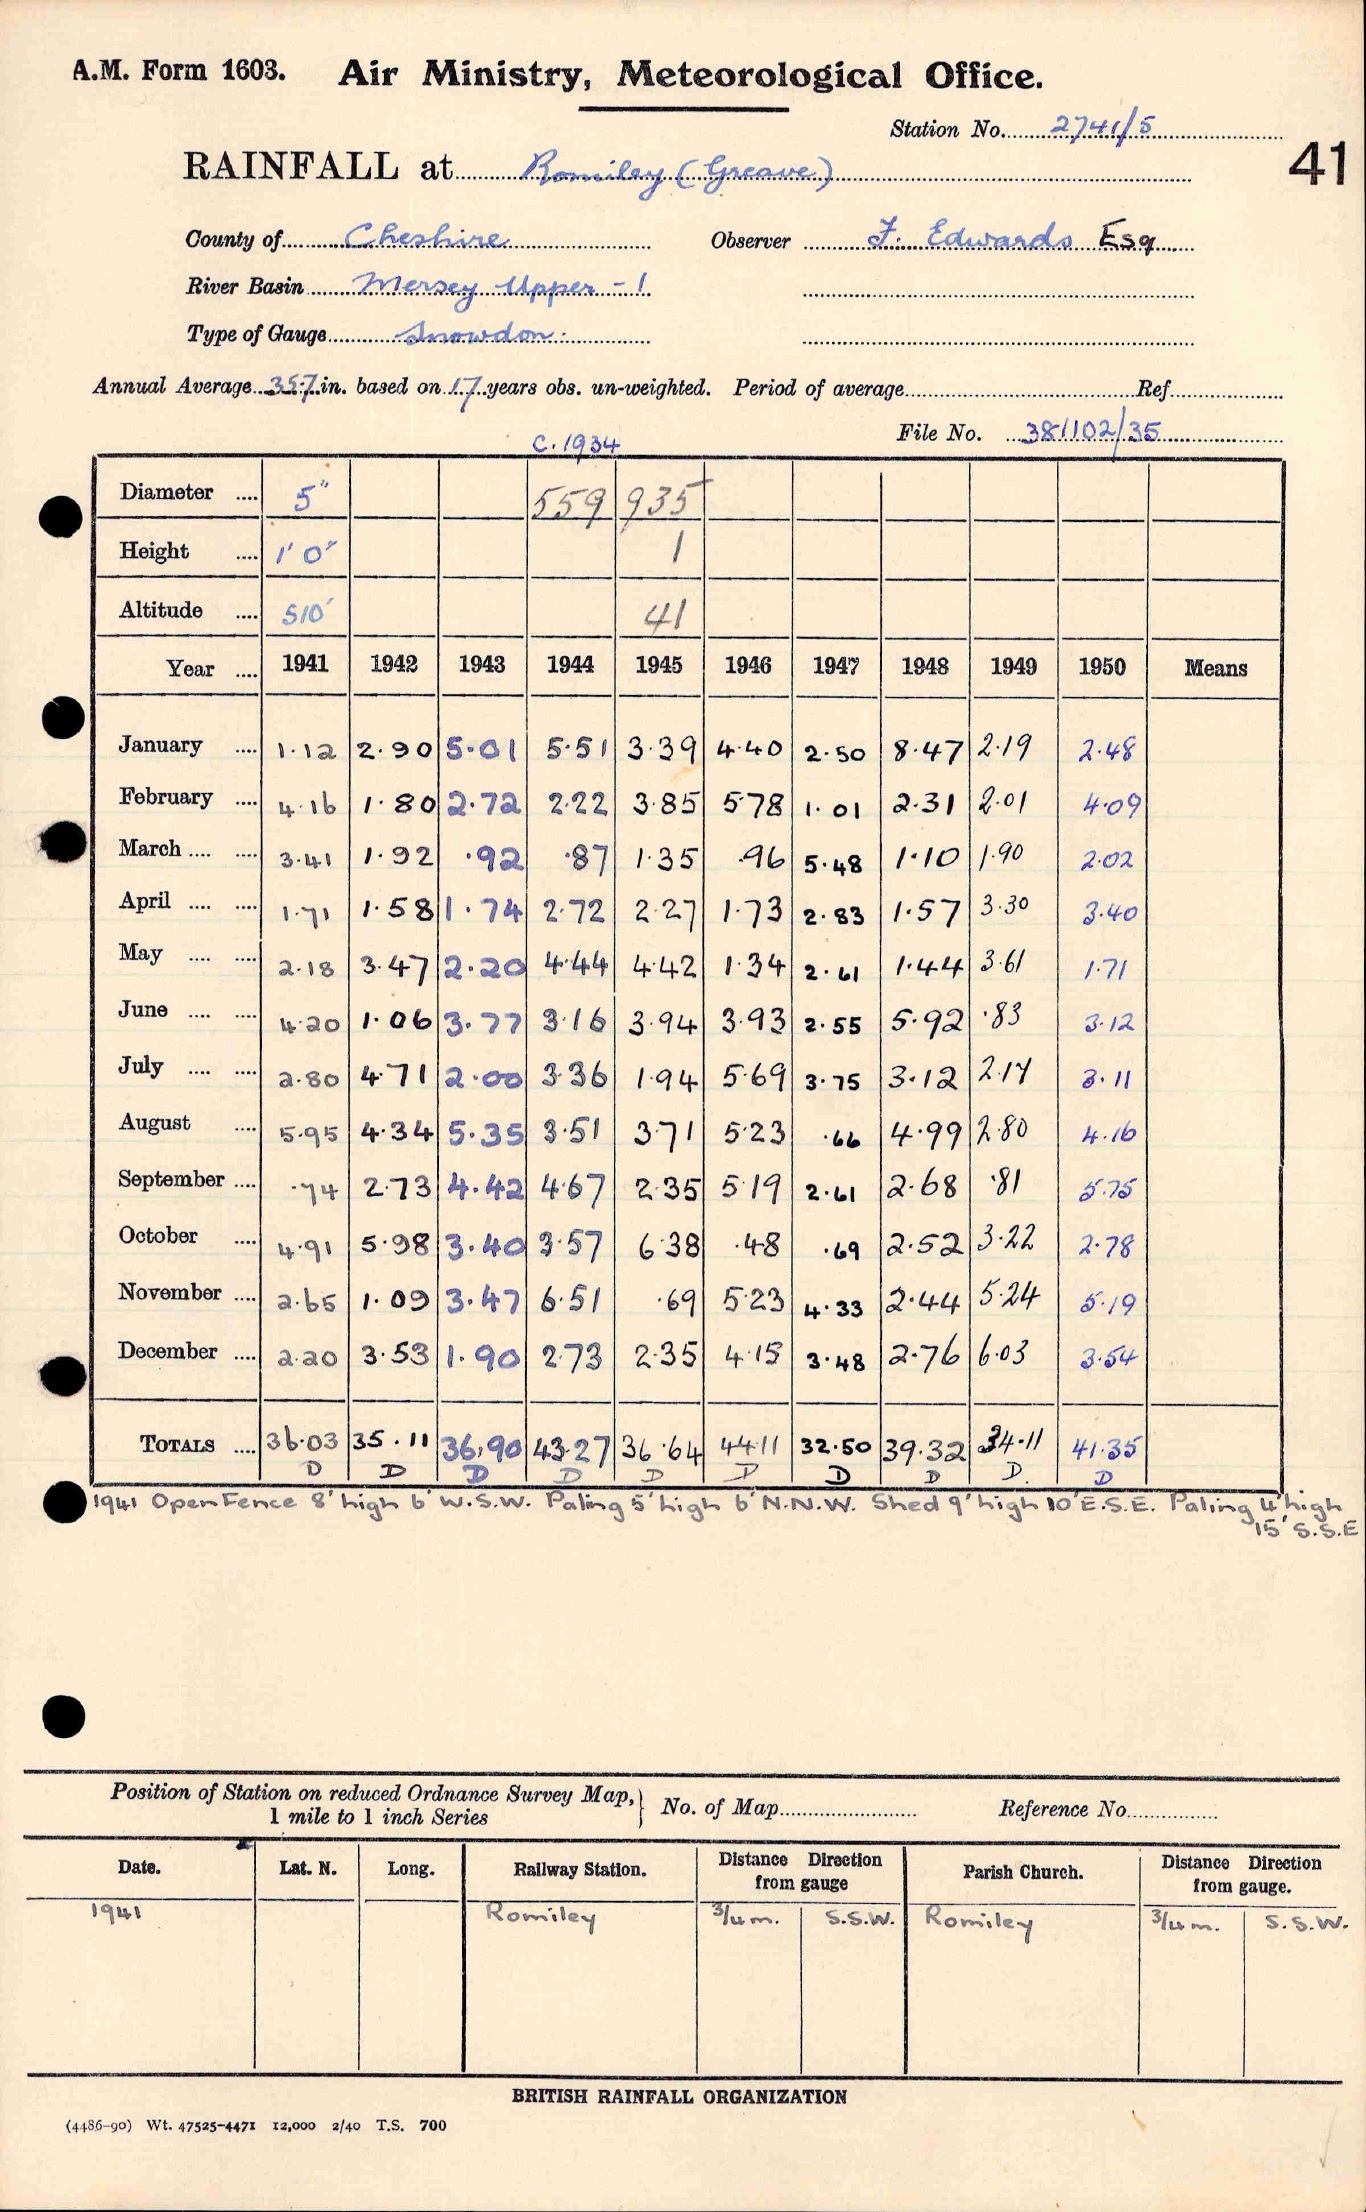 A.M. Form 1603. Air Ministry, Meteorological Office.
Station No. 2741/5
41
RAINFALL at Romiley (Greave)
County of Cheshire Observer F. Edwards Esq
River Basin Mersey Upper - 1
Type of Gauge Snowdon
Annual Average 35.7 in. based on 17 years obs. un-weighted. Period of average Ref
File No. 381102/35
C. 1934
Diameter 5" 559 935
Height 1' 0" 1
Altitude 510' 41
Year 1941 1942 1943 1944 1945 1946 1947 1948 1949 1950 Means
January 1.12 2.90 5.01 5.51 3.39 4.40 2.50 8.47 2.19 2.48
February 4.16 1.80 2.72 2.22 3.85 5.78 1.01 2.31 2.01 4.09
March 3.41 1.92 .92 .87 1.35 .96 5.48 1.10 1.90 2.02
April 1.71 1.58 1.74 2.72 2.27 1.73 2.83 1.57 3.30 3.40
May 2.18 3.47 2.20 4.44 4.42 1.34 2.61 1.44 3.61 1.71
June 4.20 1.06 3.77 3.16 3.94 3.93 2.55 5.92 .83 3.12
July 2.80 4.71 2.00 3.36 1.94 5.69 3.75 3.12 2.17 3.11
August 5.95 4.34 5.35 3.51 3.71 5.23 .66 4.99 2.80 4.16
September .74 2.73 4.42 4.67 2.35 5.19 2.61 2.68 .81 5.75
October 4.91 5.98 3.40 3.57 6.38 .48 .69 2.52 3.22 2.78
November 2.65 1.09 3.47 6.51 .69 5.23 4.33 2.44 5.24 5.19
December 2.20 3.53 1.90 2.73 2.35 4.15 3.48 2.76 6.03 3.54
TOTALS 36.03 35.11 36.90 43.27 36.64 44.11 32.50 39.32 34.11 41.35
D D D D D D D D D. D
1941 Open Fence 8' high 6' W.S.W. Paling 5' high 6' N.N.W. Shed 9' high 10' E.S.E. Paling 4' high
15' S.S.E
Position of Station on reduced Ordnance Survey Map, 1 mile to 1 inch Series } No. of Map Reference No.
Date. Lat. N. Long. Railway Station. Distance Direction from gauge Parish Church. Distance Direction from gauge.
1941 Romiley 3/4 m. S.S.W. Romiley 3/4 m. S.S.W.
BRITISH RAINFALL ORGANIZATION
(4486-90) Wt. 47525-4471 12,000 2/40 T.S. 700